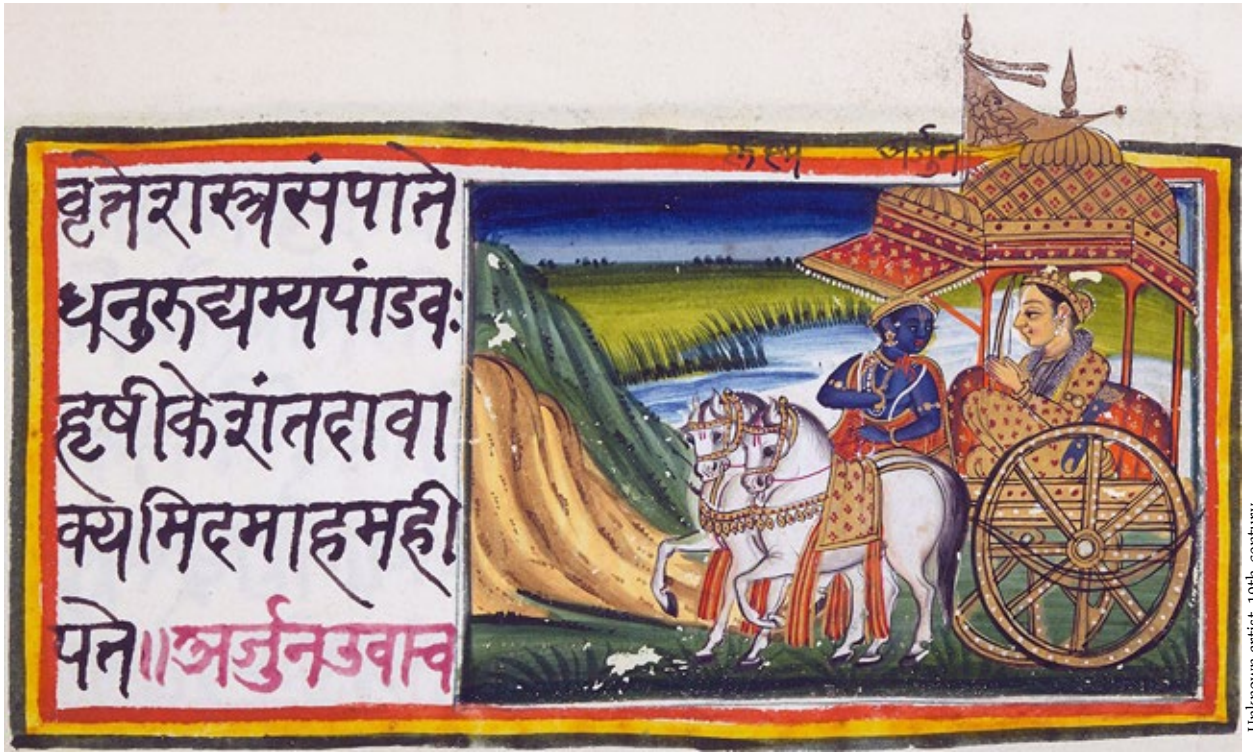 कृष्ण अर्जुन
वृत्तेशस्त्रसंपाते
धनुरुद्यम्यपांडवः
हृषीकेशंतदावा
क्यमिदमाहमही
पते॥अर्जुनउवाच
Unknown artist, 19th-century